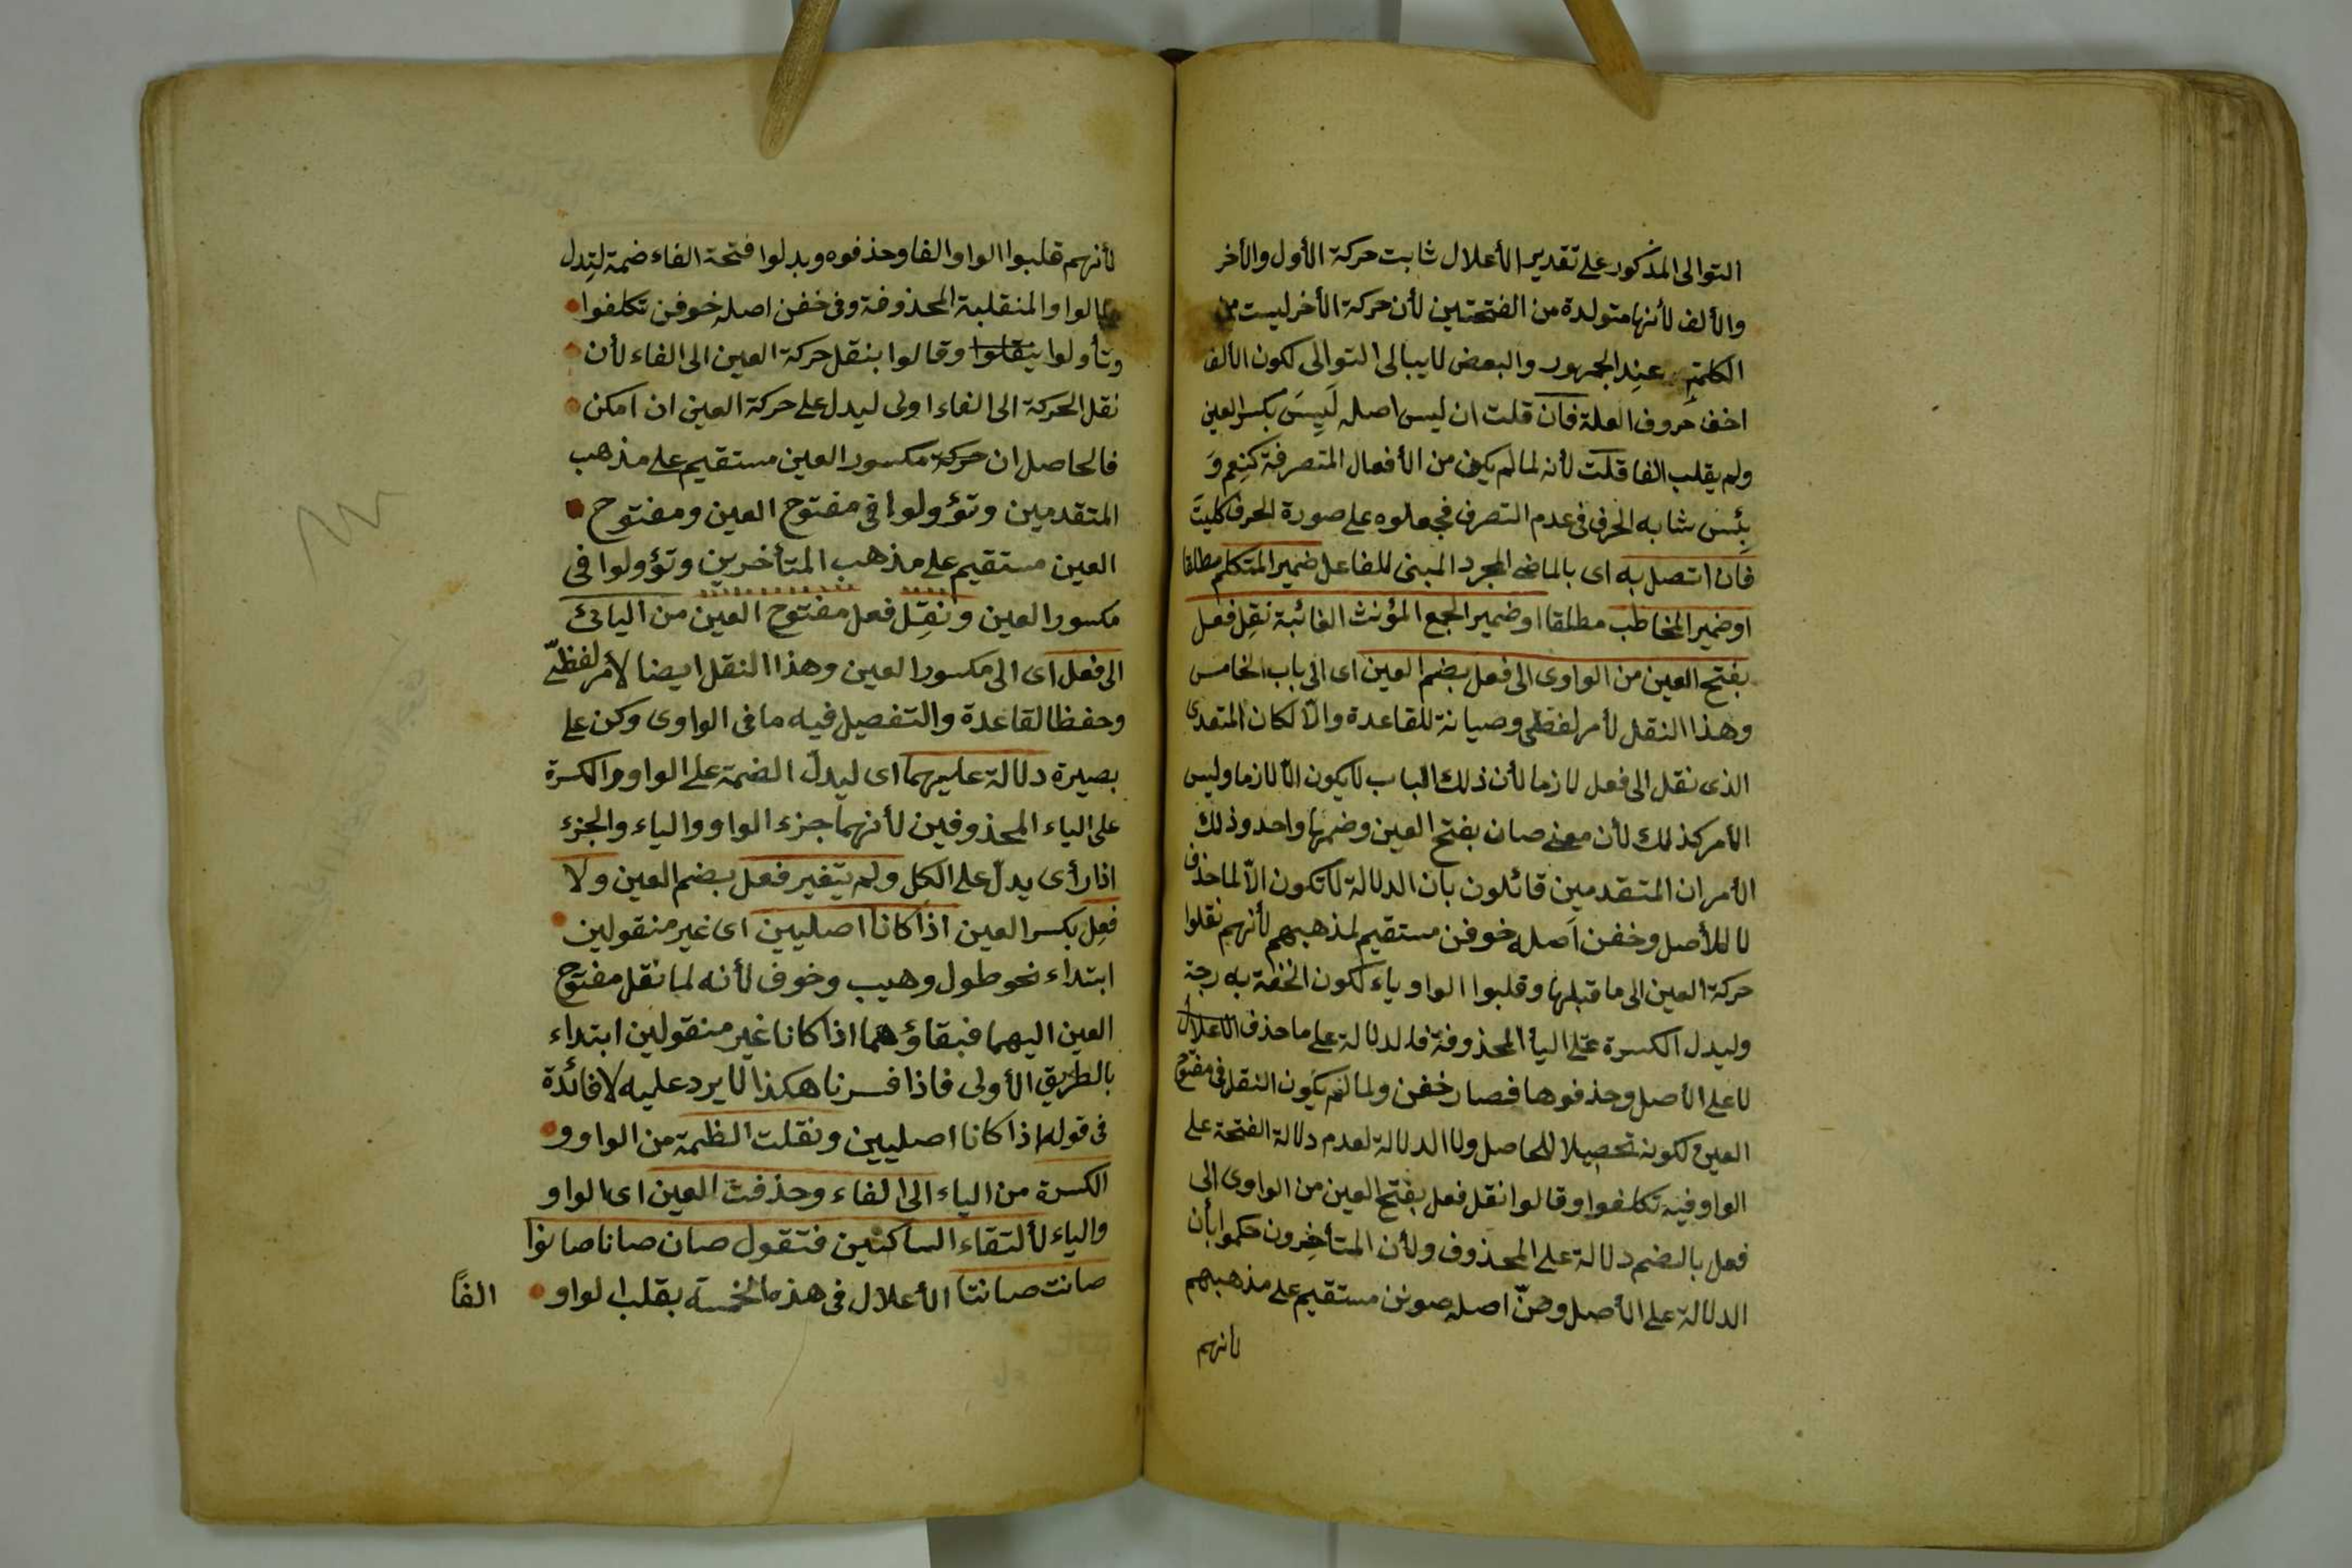 التوالى المذكور على تقدير الأعلال ثابت حركة الأول والأخر
والألف لأنها متولدة من الفتحتين لأن حركة الأخر ليست من
الكلمة عند الجمهور والبعض لا يبالى التوالى لكون الألف
اخف حروف العلة فان قلت ان ليس اصله لَيِسَ بكسر العين
ولم يقلب الفا قلت لأنه لما لم يكن من الأفعال المتصرفة كنِعم وَ
بِئس شابه الحرف فى عدم التصرف فجعلوه على صورة الحرف كليت
فان اتصل به اى بالماضى المجرد المبنى للفاعل ضمير المتكلم مطلقا
او ضمير المخاطب مطلقا او ضمير الجمع المؤنث الغائبة نقِل فعل
بفتح العين من الواوى الى فعل بضم العين اى الى باب الخامس
وهذا النقل لأمر لفظى وصيانة للقاعدة والّا لكان المتعدى
الذى نقل الى فعل لازما لأن ذلك الباب لا يكون الّا لازما وليس
الأمر كذلك لأن معنى صان بفتح العين وضمها واحد وذلك
الأمر ان المتقدمين قائلون بأن الدلالة لا تكون الّا لما حذف
لا للأصل وخفن اصله خوفن مستقيم لمذهبهم لأنهم نقلوا
حركة العين الى ما قبلها وقلبوا الواو ياء لكون الخفة به رجة
وليدل الكسرة على اليأ المحذوفة فالدلالة على ما حذف الاعلال
لا على الأصل وحذفوها فصار خفن ولما لم يكون النقل فى مفتوح
العين لكونه تحصيلا للحاصل ولا الدلالة لعدم دلالة الفتحة على
الواو فيه تكلفوا وقالوا نقل فعل بفتح العين من الواوى الى
فعل بالضم دلالة على المحذوف ولأن المتأخرون حكموا بأن
الدلالة على الأصل وصنّ اصله صونن مستقيم على مذهبهم
لأنهم
لأنهم قلبوا الواو الفا وحذفوه وبدلوا فتحة الفاء ضمة لتدل
الواو المنقلبة المحذوفة وفى خفن اصله خوفن تكلفوا
وتأولوا ينقلوا وقالوا بنقل حركة العين الى الفاء لأن
نقل الحركة الى الفاء اولى ليدل على حركة العين ان امكن
فالحاصل ان حركة مكسور العين مستقيم على مذهب
المتقدمين وتؤولوا فى مفتوح العين ومفتوح
العين مستقيم على مذهب المتأخرين وتؤولوا فى
مكسور العين ونقِل فعل مفتوح العين من اليائى
الى فعل اى الى مكسور العين وهذا النقل ايضا لأمر لفظىّ
وحفظا لقاعدة والتفصيل فيه ما فى الواوى وكن على
بصيرة دلالة عليهما اى ليدلّ الضمة على الواو والكسرة
على الياء المحذوفين لأنهما جزء الواو والياء والجزء
اذا رأى يدلّ على الكل ولم يتغير فعل بضم العين ولا
فعِل بكسر العين اذا كانا اصليين اى غير منقولين
ابتداء نحو طول وهيب وخوف لأنه لما نقل مفتوح
العين اليهما فبقاؤهما اذا كانا غير منقولين ابتداء
بالطريق الأولى فاذا فسرنا هكذا لا يرد عليه لا فائدة
فى قوله اذا كانا اصليين ونقلت الظمة من الواو و
الكسرة من الياء الى الفاء وحذفت العين اى الواو
والياء لألتقاء الساكنين فتقول صان صانا صانوا
صانت صانتا الأعلال فى هذه الخمسة بقلب الواو
الفًا